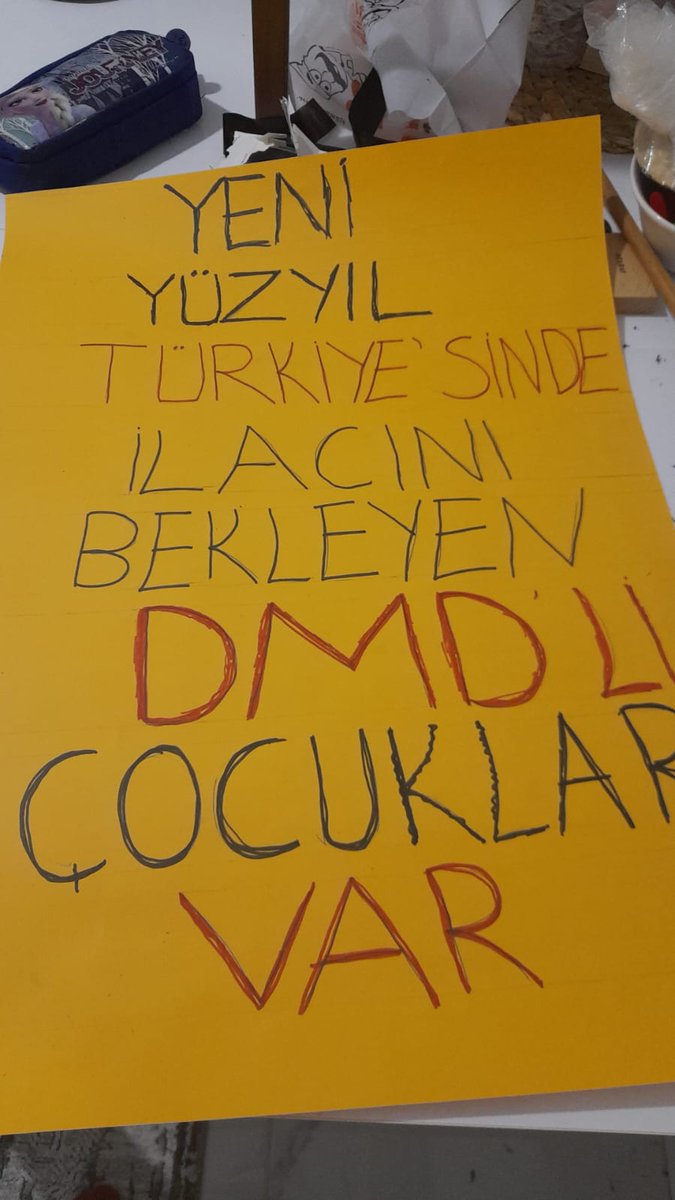 YENİ
YÜZYIL
TÜRKİYE'SİNDE
İLACINI
BEKLEYEN
DMD'Lİ
ÇOCUKLAR
VAR